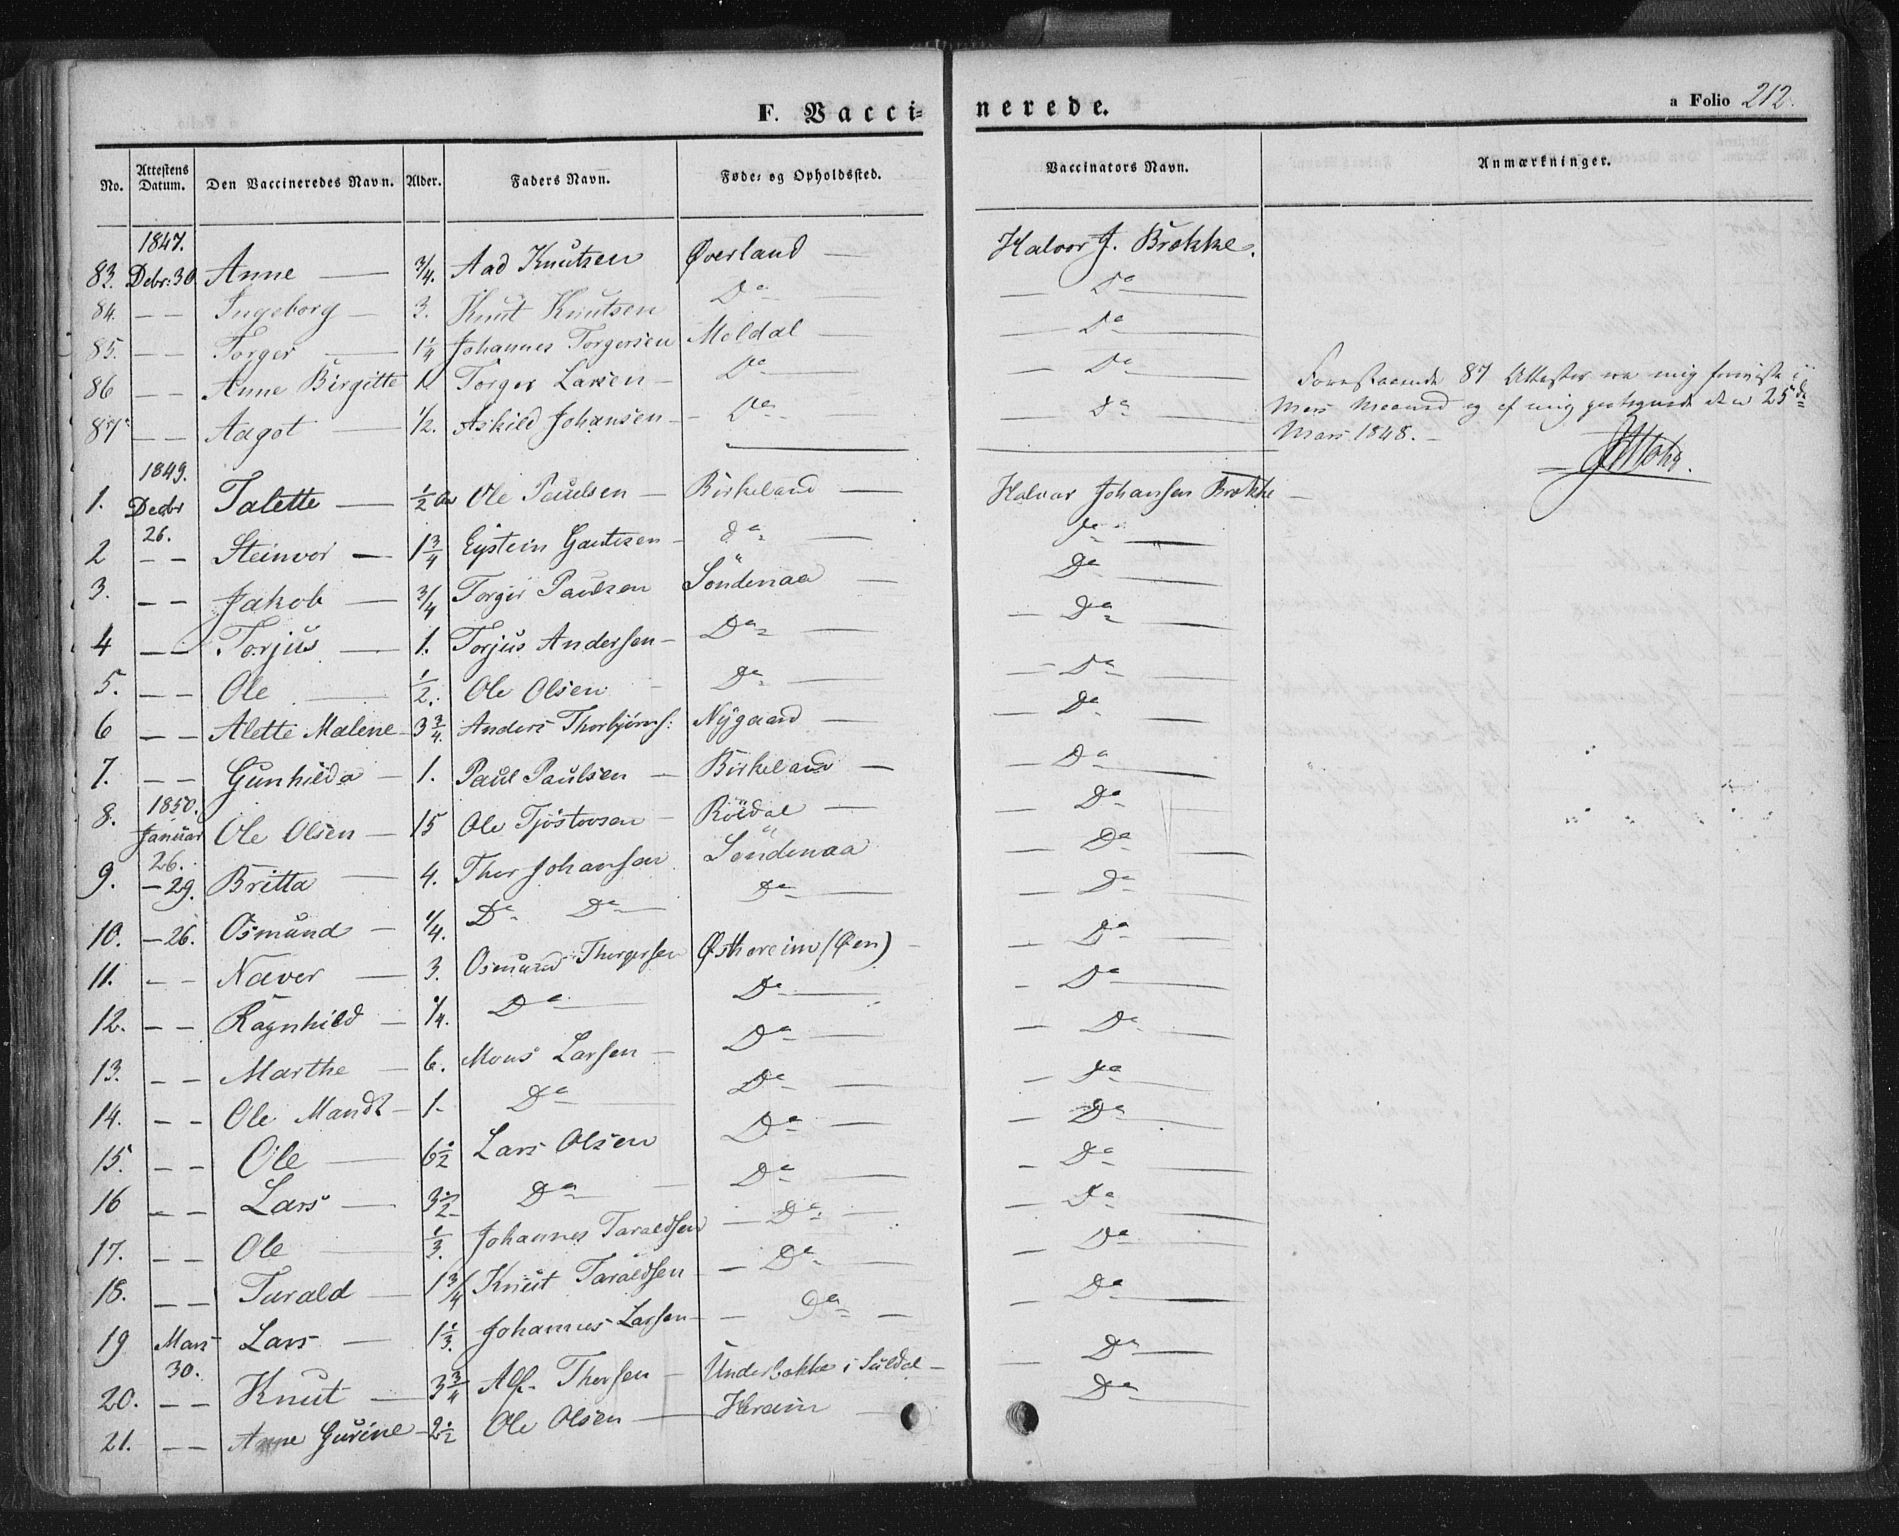 F. Vacci-nerede.
a Folio 212.
No. Attestens Datum. Den Vaccineredes Navn. Alder. Faders Navn. Føde- og Opholdssted. Vaccinators Navn. Anmærkninger.
1847.
83. Debr: 30 Anne — 3/4. Aad Knutsen Øverland — Halvor J. Brokke.
84. — — Ingeborg — 3. Knut Knutsen Do — — Do —
85. — — Torger — 1 1/4 Johannes Torgersen Moldal — — Do —
86 — — Anne Birgitte 1 Torger Larsen — Do — — Do —
87 — — Aagot — 1/2. Askild Johansen — Do — Do —
Forestaaende 87 Attester ere mig foreviste i
Mars Maaned og af mig protegnede den 25de
Mars 1848. —
1849.
1. Decbr 26. Talette — 1/2 Ole Paulsen — Birkeland — Halvor Johansen Brokke —
2 — — Steinvor — 1 3/4 Eystein Gautesen — do — Do —
3. — — Jakob — 3/4 Torger Paulsen Söndenaa — Do —
4 — — Torjus — 1. Torjus Andersen — Do — — Do —
5. — — Ole — 1/2. Ole Olsen — Do — — Do —
6 — — Alette Malene 3 3/4. Anders Thorbjörns: Nygaard — — Do —
7. — — Gunhilda — 1. Paul Paulsen — Birkeland — — Do —
1850.
8. Januar 26. Ole Olsen — 15 Ole Tjöstovsen — Röldal — — Do —
9. — 29. Britta — 4. Thor Johansen Söndenaa — Do —
10. — 26. Osmund — 1/4. Do Do — Do — — Do —
11. — — Naver — 3. Osmund Thorgersen Østhereim (Øen) — — Do —
12. — — Ragnhild — 1/4. Do — Do — — Do —
13. — — Marthe — 6. Mons Larsen — Do — — Do —
14. — — Ole Mandt — 1. Do — Do — — Do —
15. — — Ole — 6 1/2 Lars Olsen Do — — Do —
16 — — Lars — 3 1/2 Do — Do — — Do —
17. — — Ole 1/3. Johannes Taraldsen — Do — — Do —
18. — — Tarald — 1 3/4 Knut Taraldsen — Do — — Do —
19 Mars 30. Lars — 1 1/3. Johannes Larsen — — Do — — Do —
20. — — Knut — 3 3/4 Alf Thorsen — Underbakke i Suldal — — Do —
21. — — Anne Gurine — 2 1/2 Ole Olsen — Hereim — Do —